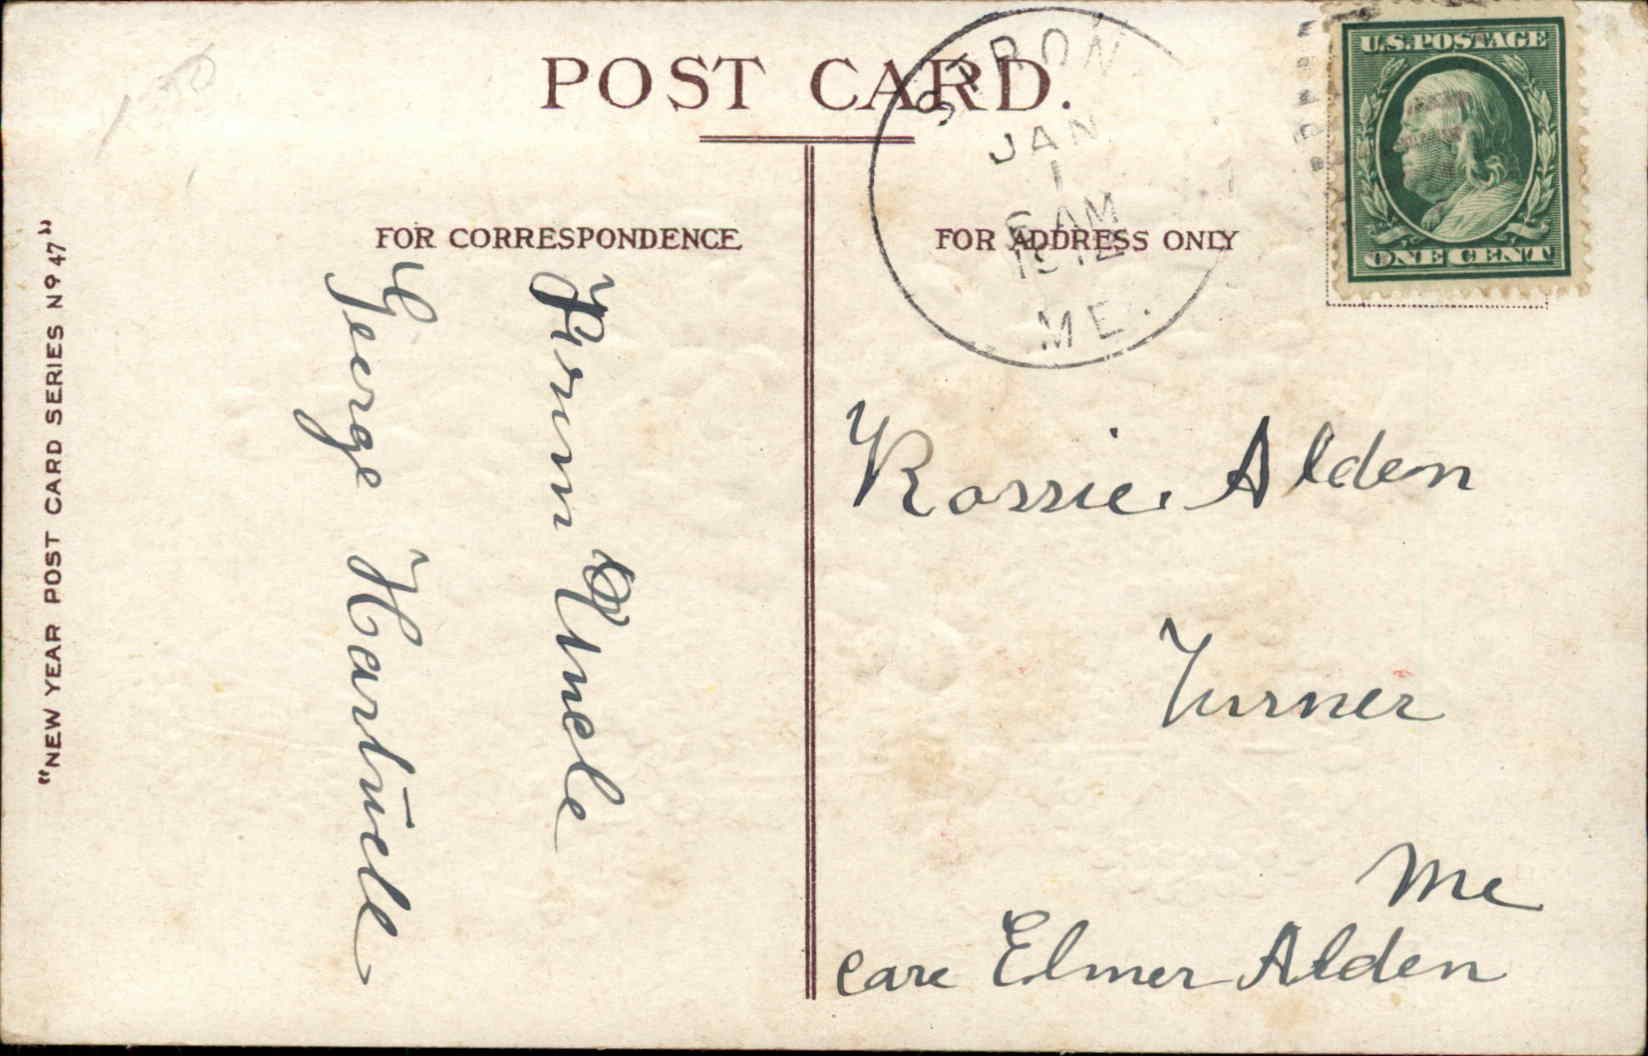 POST CARD.
FOR CORRESPONDENCE
FOR ADDRESS ONLY
"NEW YEAR POST CARD SERIES Nº 47"
JAN
1
6 AM
1912
ME.
U.S. POSTAGE
ONE CENT
From Uncle
George Hartwell
Rossie Alden
Turner
Me
care Elmer Alden